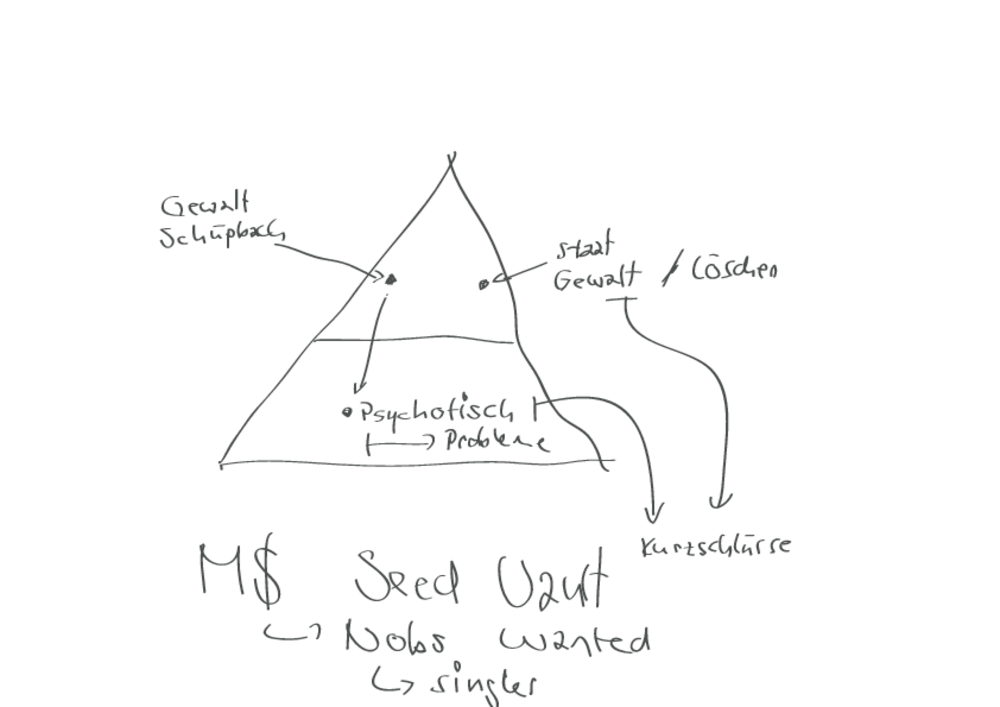 Gewalt
Schüpbach
Staat
Gewalt / Löschen
• Psychotisch
Probleme
Kurtzschlüsse
M$ Seed Vault
Nobs wanted
singles